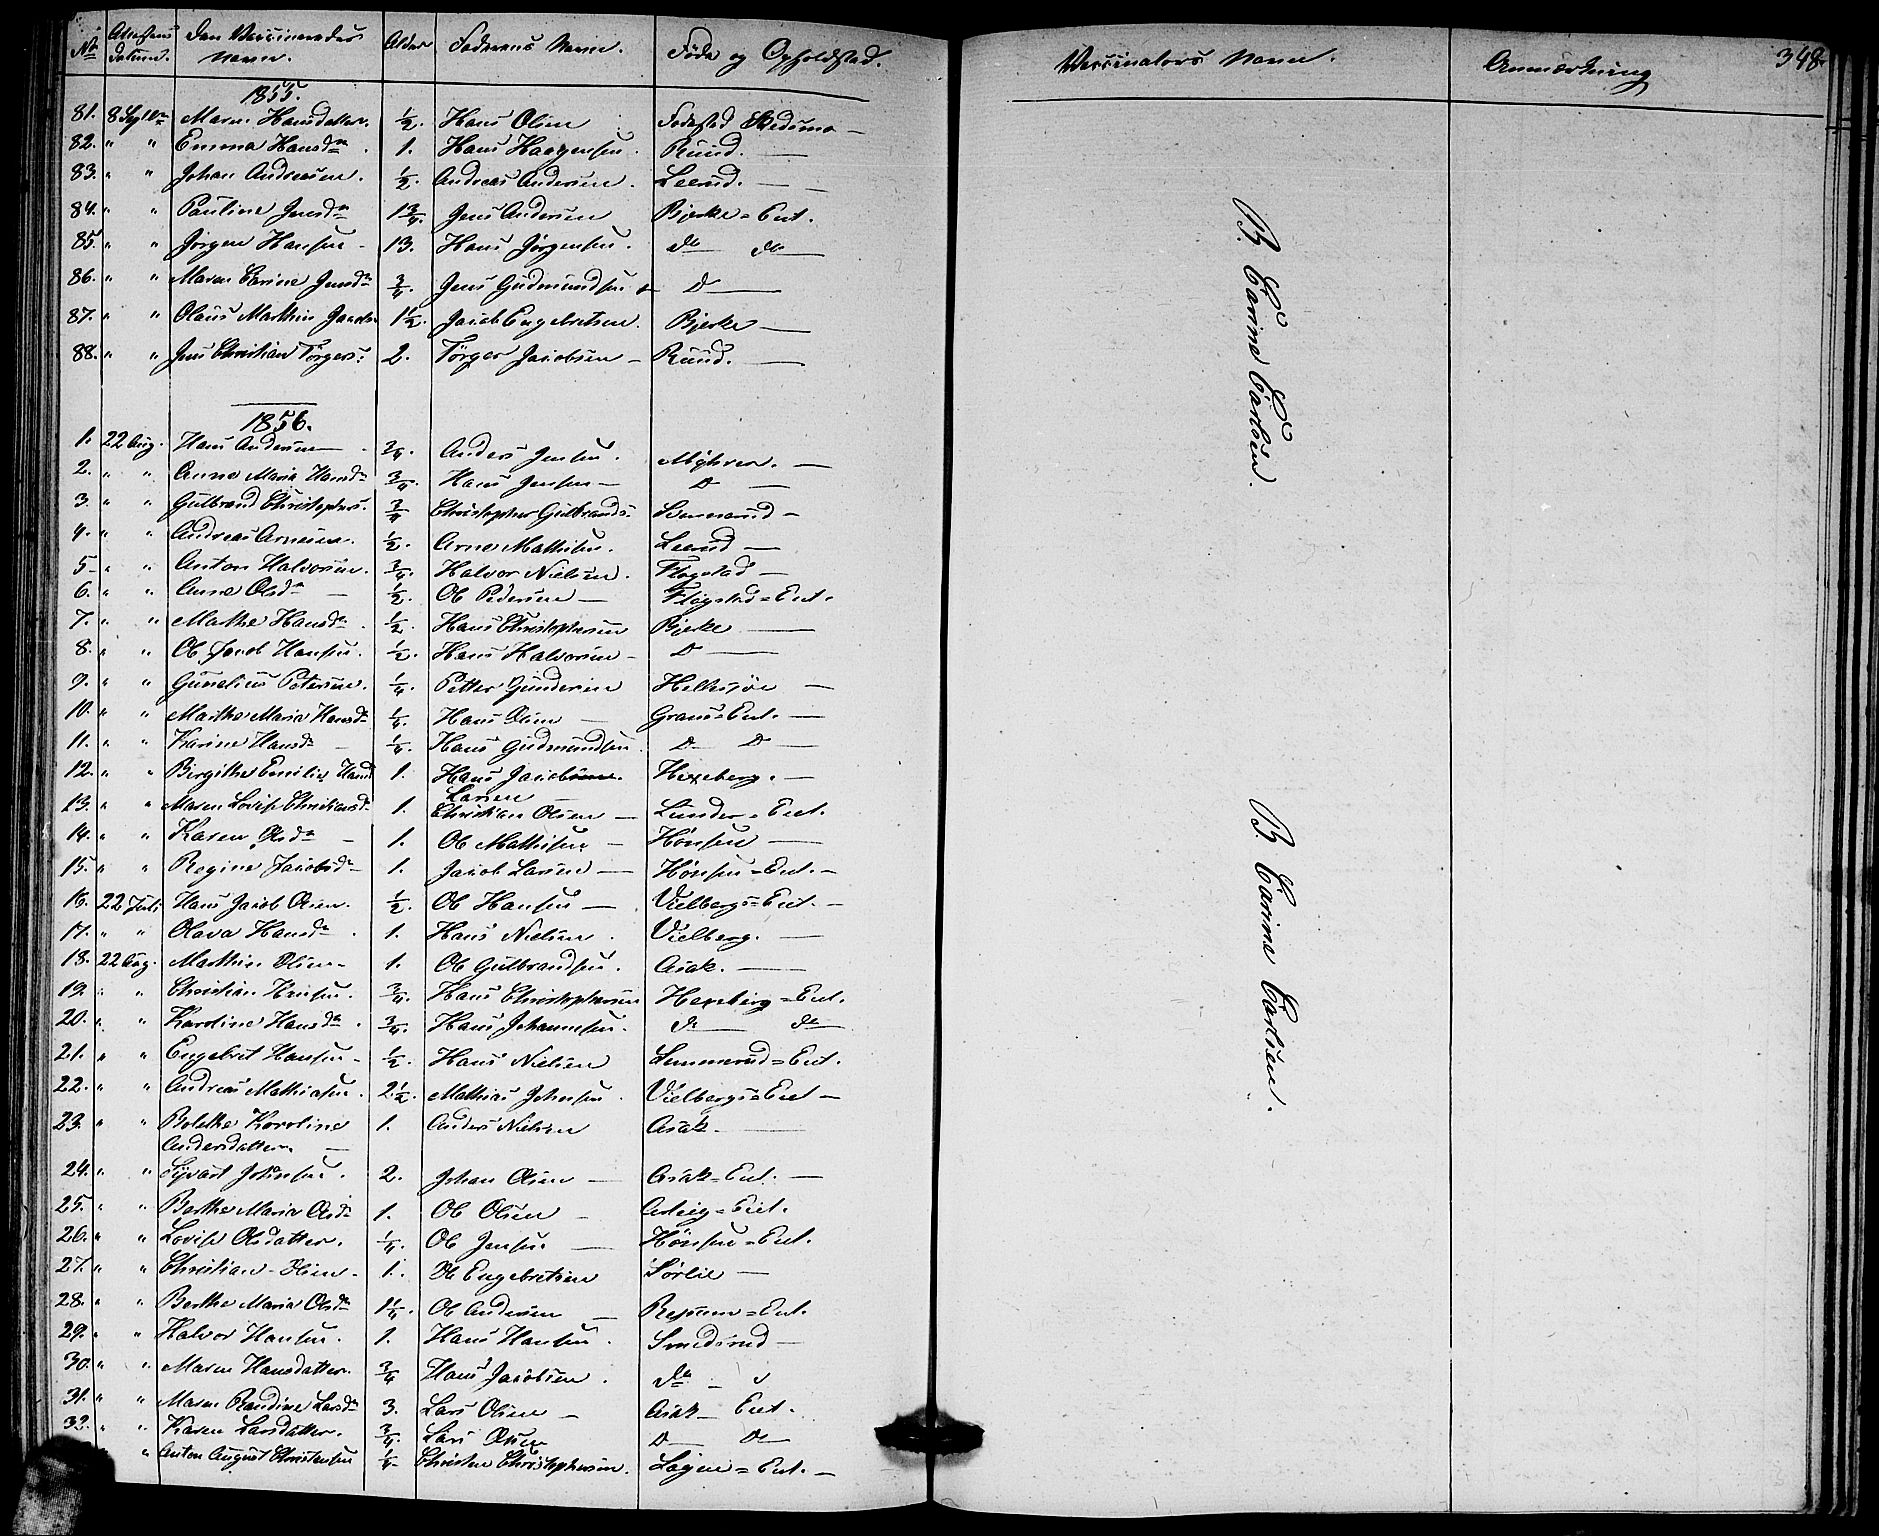 No Attestens Datum. Den Vaccineredes Navn. Alder Faderens Navn. Føde og Opholdsted. Vaccinators Navn. Anmærkning 348
1855.
81. 8 Sept Maren Hansdatter. ½. Hans Olsen Fodstad Skedsmo —
82. " " Emma Hansdr. 1. Hans Haagensen. Ruud. —
83. " " Johan Andreasen. ½. Andreas Andersen. Leerud. —
84. " " Pauline Jensdr 1¾. Jens Andersen Bjerke=Eiet.
85. " " Jørgen Hansen - 13. Hans Jørgensen. do do —
86. " " Maren Karine Jensdr ¾. Jens Gudmundsen D —
87. " " Olaus Mathis 1½. Jacob Engebretsen. Bjerke —
88. " " Jens Christian Torgers: 2. Torger Jacobsen — Ruud. —
1856.
1. 22 Aug. Hans Andersen — ¾. Anders Jensen. —
2. " " Anne Maria Hansdr ¾. Hans Jensen — D —
3. " " Gulbrand Christophers. ¾ Christopher Gulbrands: —
4. " " Andreas Arnesen. ½. Arne Mathisen. Leerud —
5 " " Anton Halvorsen. ¾. Halvor Nielsen. Flogstad —
6. " " Anne Olsdr — ½. Ole Pedersen — Flogstad=Eiet.
7. " " Mathe Hansdr. ½. Hans Christophersen Bjerke —
8. " " Ole Jacob Hansen. ½. Hans Halvorsen — D —
9. " " Gunelius Petersen. ¼. Petter Gundersen Hellesjøe —
10. " " Marthe Maria Hansdr ¼. Hans Olsen — Grans=Eiet. —
11. " " Karine Hansdr — ¼. Hans Gudmundsen D D —
12. " " Birgithe Emilie Hansd 1. Hans Jacobsen. Hexeberg. —
Larsen —
13. " " Maren Lovise Christiansdr 1. Christian Olsen — Lunder=Eiet.
14. " " Karen Olsdr — 1. Ole Mathisen — Hønsen —
15. " " Regine Jacobsdr 1. Jacob Larsen — Hønsen=Eiet. —
16. 22 Juli Hans Jacob Olsen. ½. Ole Hansen — Vielbergs=Eiet. —
17. " " Olava Hansdr. 1. Hans Nielsen. Vielberg. —
18. 22 Aug. Mathis Olsen — 1. Ole Gulbrandsen. Asak. —
19. " " Christian Hansen. ¾. Hans Christophersen Hexeberg=Eiet.
20. " " Karoline Hansdr. ¾. Hans Johannesen. do do
21. " " Engebret Hansen — ½. Hans Nielsen =Eiet.
22. " " Andreas Mathiasen. 2½. Mathias Johnsen. Vielbergs=Eiet —
23. " " Bolethe Karoline 1. Anders Nielsen Asak. —
Andersdatter. —
24. " " Syvert Johnsen. 2. Johan Olsen — Asak=Eiet. —
25. " " Berthe Maria Olsdr 1. Ole Olsen — =Eiet.
26. " " Lovise Olsdatter. ¼. Ole Jensen — Hønsen=Eiet.
27. " " Christian Olsen. 1. Ole Engebretsen Sørlie —
28. " " Berthe Maria Olsdr 1¼. Ole Andersen — =Eiet.
29. " " Halvor Hansen. 1. Hans Hansen. Smedsrud —
30. " " Maren Hansdatter. ¾ Hans Jacobsen. do —
31. " " Maren Randine Larsdr 3. Lars Olsen — Asak Eiet.
32. " " Karen Larsdatter. ¾. Lars Olsen D D
" Anton August Christensen ¼. Christen Christophersen. =Eiet. —
B. Carine Carlsen.
B. Carine Carlsen.